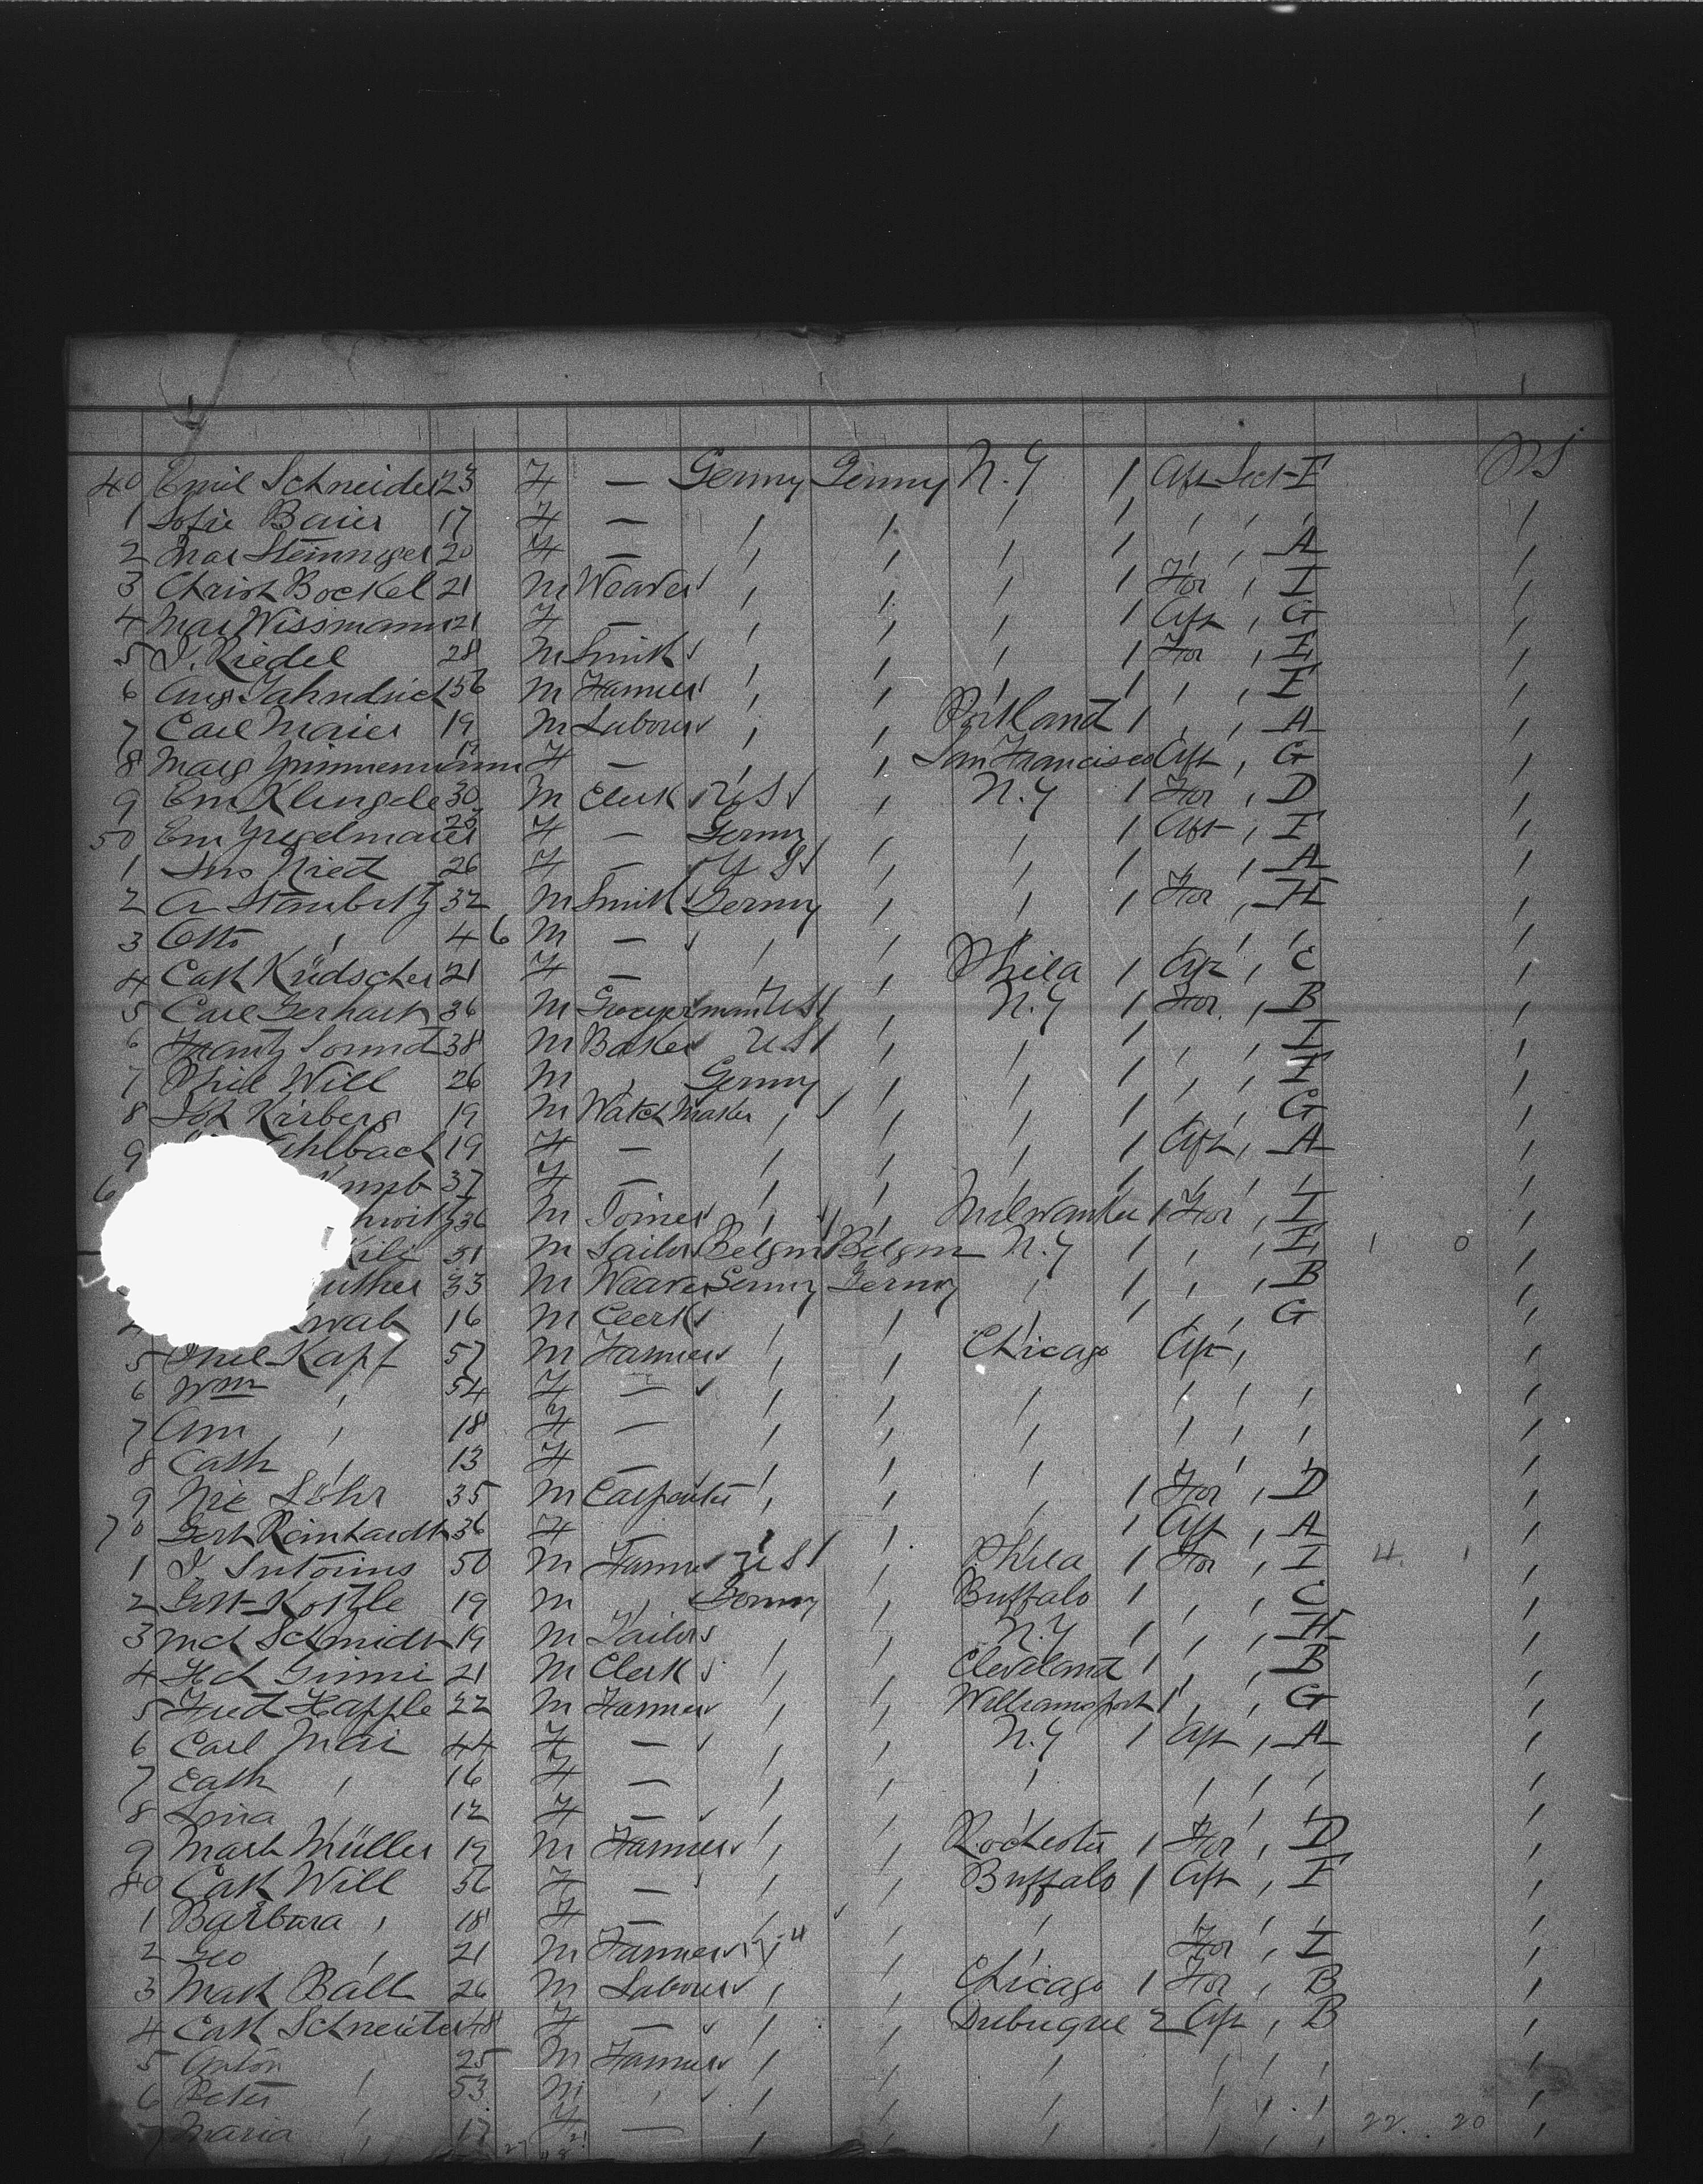 40 Emil Schneider 23 F — Germy Germy N.Y 1 Aft Sect E
1 Sofie Baier 17 F — / / / 1 / / /
2 Mar Steinniger 20 F — / / / 1 / / A
3 Christ Bockel 21 M Weaver / / / 1 For / I
4 Mar Wissmann 21 F — / / / 1 Aft / G
5 J. Riedel 28 M Smith / / / 1 For / E
6 Aug 56 M Farmer / / / 1 / / E
7 Carl Maier 19 M Labour / / Portland 1 / / A
8 Marg 19 F — / / San Francisco Aft / G
9 Em Klingele 30 M Clerk U S / N.Y 1 For / D
50 Em 20 F — Germy / / 1 Aft / E
1 Ried 26 F — U S / / 1 / / A
2 A 32 M Smith Germy / / 1 For / H
3 Otto / 4 6 M — / / / / / /
4 Cath Küdscher 21 F — / / Phila 1 Aft / C
5 Carl Gerhart 36 M U S / N.Y 1 For / B
6 Frantz 38 M Baker U S / / 1 / / I
7 Phil Will 26 M / Germy / / 1 / / E
8 Kirberg 19 M Watch Maker / / / 1 / / G
9 ahlbach 19 F — / / / 1 Aft / A
6 37 F — / / / / / /
36 M Joiner / / Milwaukee 1 For / I
31 M Sailor Belgm Belgm N.Y 1 / / E 1 0
uther 33 M Weaver Germy Germy / 1 / / B
4 wab 16 M Clerk / / / 1 / / G
5 Phil Kapf 57 M Farmer / / Chicago Aft /
6 Wm / 54 F — / / / / / /
7 Ann / 18 F — / / / / / /
8 Cath / 13 F — / / / / / /
9 Nic Löhr 35 M Carpenter / / / 1 For / D
70 Gert Reinhardt 36 F / / / 1 Aft / A
1 J. 50 M Farmer U S / Phila 1 For / I 4 1
2 Gott 19 M / Germy / Buffalo 1 / / C
3 Mch Schmidt 19 M Tailor / / N.Y 1 / / H
4 21 M Clerk / / Cleveland 1 / / B
5 Fred Happle 22 M Farmer / / Williamsport 1 / / G
6 Carl Mai 44 F — / / N.Y 1 Aft / A
7 Cath / 16 F — / / / / / /
8 Lina / 12 F — / / / / / /
9 Mart Müller 19 M Farmer / / Rochester 1 For / D
80 Cath Will 56 F — / / Buffalo 1 Aft / E
1 Barbara / 18 F — / / / / / /
2 Geo / 21 M Farmer / / / For / I
3 Math Ball 26 M Labour / / Chicago 1 For / B
4 Cath Schneiter 48 F — / / Dubuque 2 Aft / B
5 Anton / 25 M Farmer / / / / / /
6 Peter / 53 M / / / / / / /
7 Maria / 17 F — / / / / / / 22 20